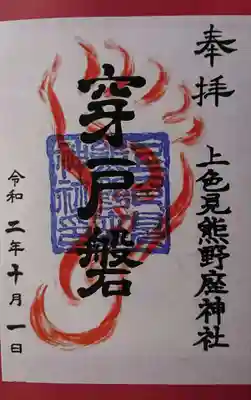 奉拝
上色見熊野座神社
穿戸磐
令和二年十月一日